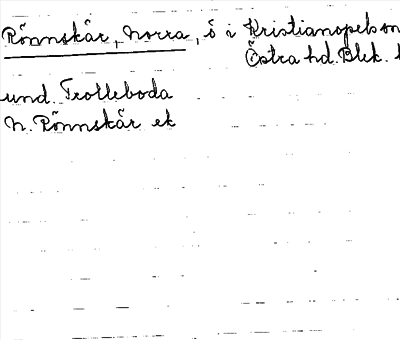 Rönnskär, Norra, ö i Kristianopels sn
Östra hd. Blek.
und. Trolleboda
N. Rönnskär ek